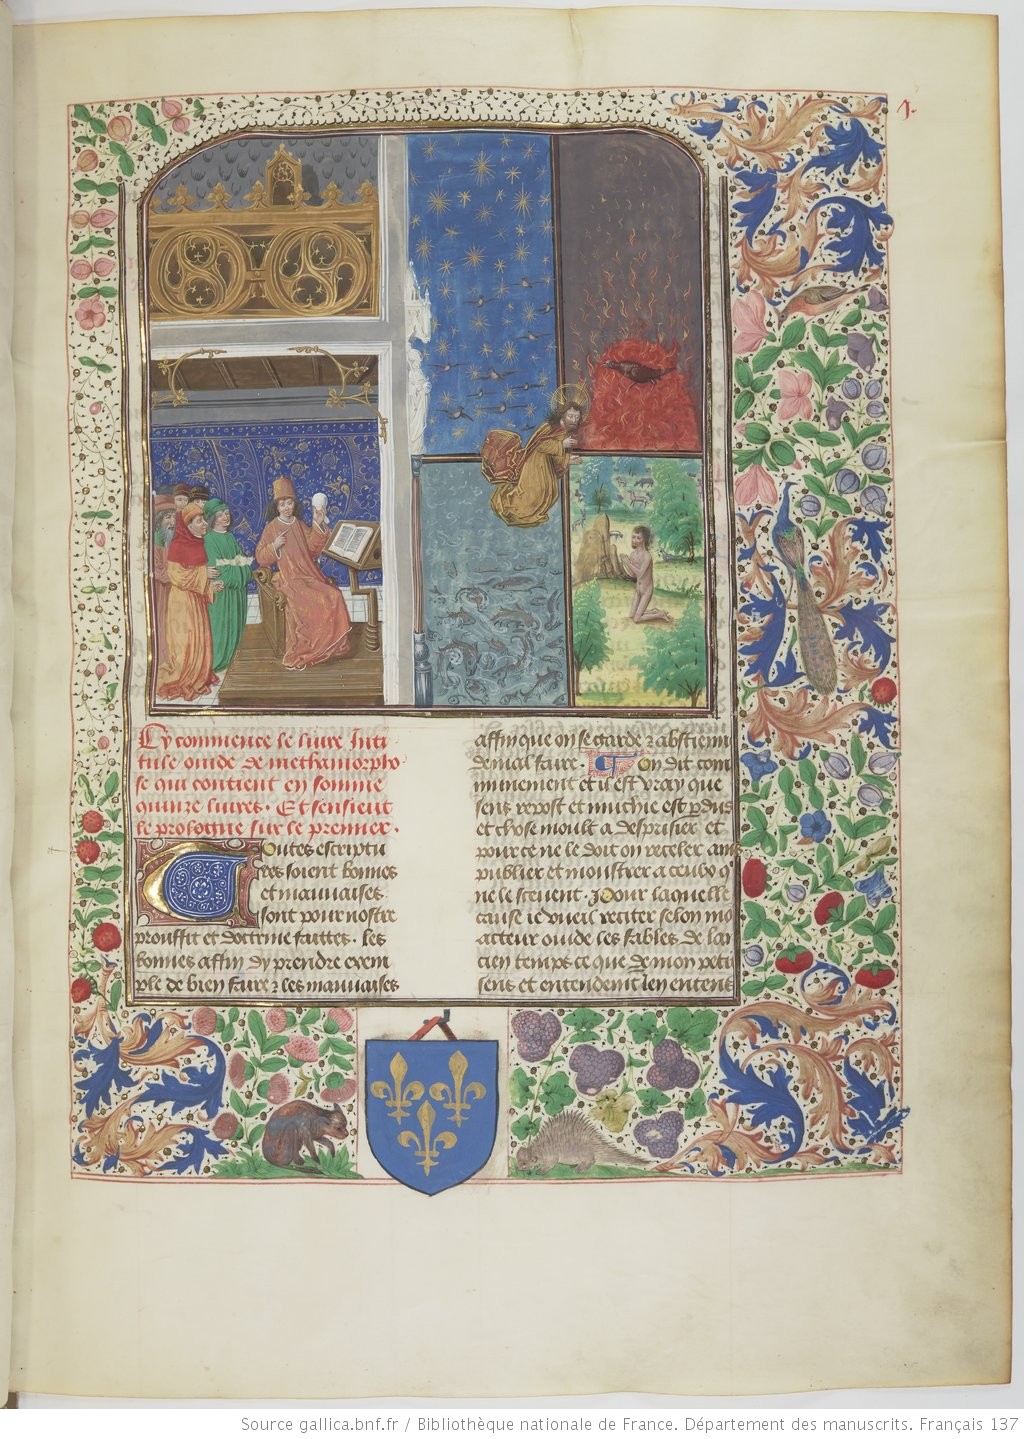 1.
Cy commence le livre Inti
tule ovide de methamorpho
se qui contient en somme
quinze livres. Et sensieut
le prologue sur le premier.
Toutes escriptu
res soient bonnes
et mauvaises
sont pour nostre
prouffit et doctrine faittes. les
bonnes affin dy prendre exem
ple de bien faire ⁊ les mauvaises
affin que on se garde ⁊ abstieng
de mal faire. Et On dit com
munement et il est vray que
sens repost et muchie est p̱dus
et chose moult a desprisier et
pour ce ne le doit on receler ains
publier et monstrer a ceulx q̄
ne le scevent. Pour laquelle
cause ie vueil reciter selon mō
acteur ovide les fables de lan
cien temps ce que de mon petit
sens et entendemt̄ Jen entens
Source gallica.bnf.fr / Bibliothèque nationale de France. Département des manuscrits. Français 137